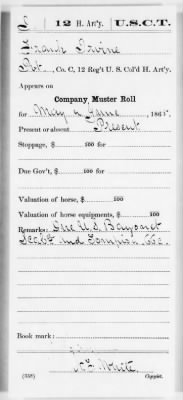 I 12 H. Art'y. U.S.C.T.
Frank Irvine
Pvt., Co. C, 12 Reg't U. S. Col'd H. Art'y.
Appears on
Company Muster Roll
for May & June, 1865.
Present or absent Present
Stoppage, $ 100 for
Due Gov't, $ 100 for
Valuation of horse, $ 100
Valuation of horse equipments, $ 100
Remarks: Due U.S. Bayonet
Scab. and
Book mark:
(358) Copyist.